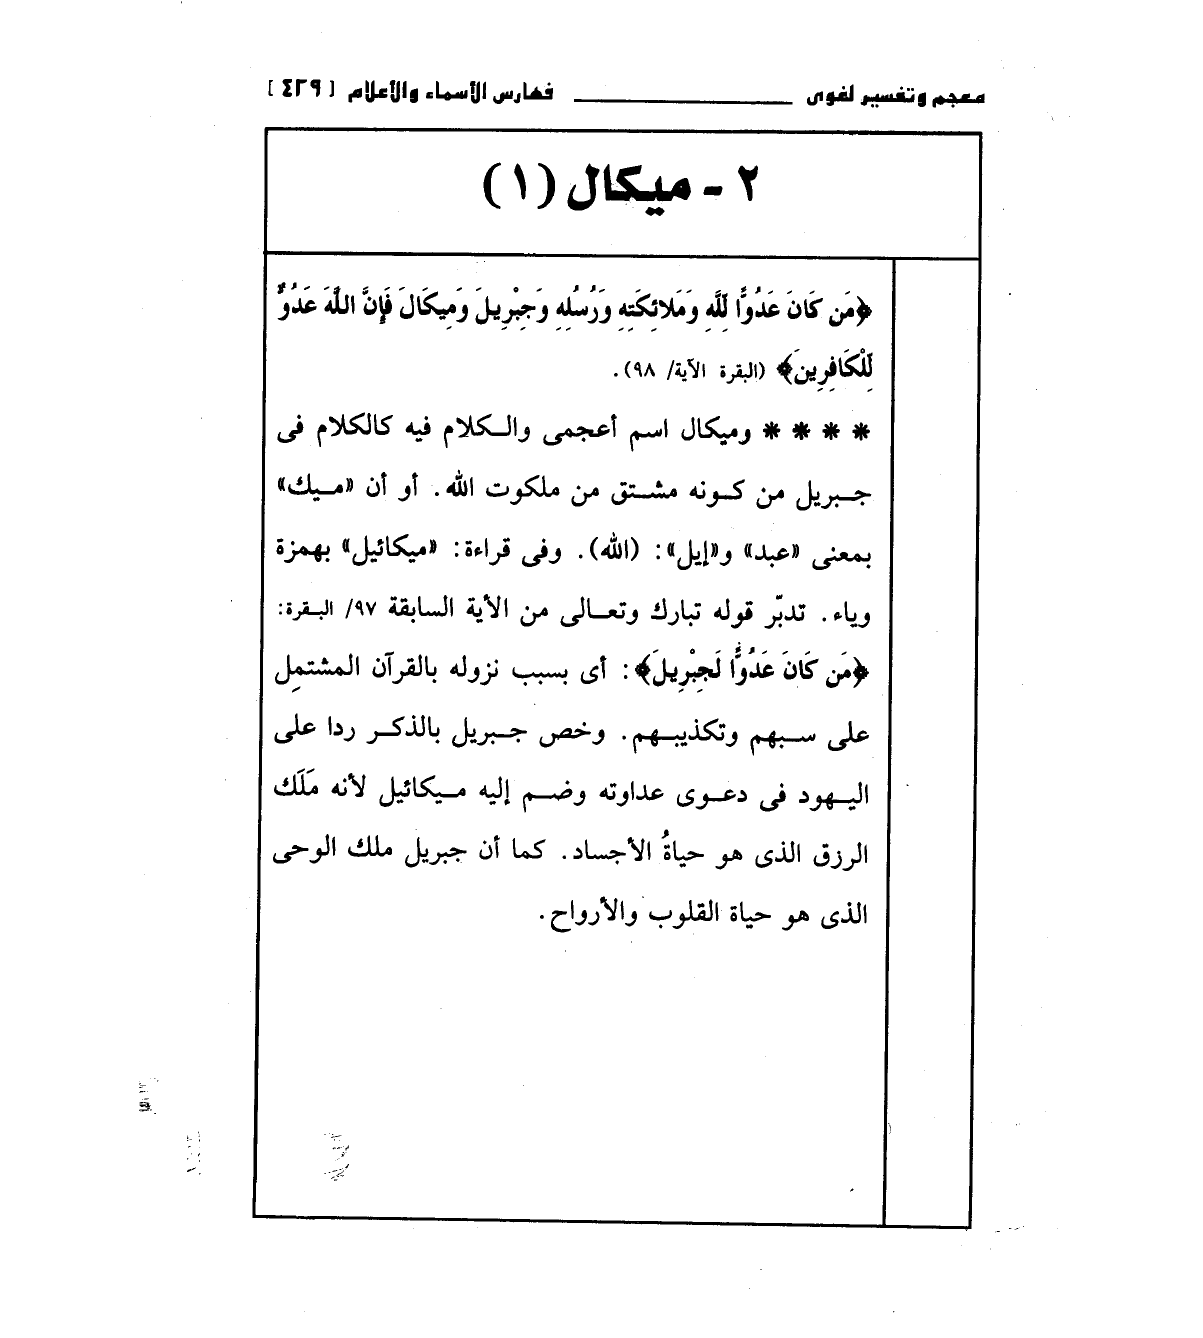 معجم وتفسير لغوى ـــــــــــــــ فهارس الأسماء والأعلام [٤٣٩]
٢ - ميكال (١)
﴿مَن كَانَ عَدُوًّا لِّلَّهِ وَمَلائِكَتِهِ وَرُسُلِهِ وَجِبْرِيلَ وَمِيكَالَ فَإِنَّ اللَّهَ عَدُوٌّ
لِّلْكَافِرِينَ﴾ (البقرة الآية/ ٩٨).
* * * * وميكال اسم أعجمى والكلام فيه كالكلام فى
جبريل من كونه مشتق من ملكوت الله. أو أن «ميك»
بمعنى «عبد» و«إيل»: (الله). وفى قراءة: «ميكائيل» بهمزة
وياء. تدبّر قوله تبارك وتعالى من الأية السابقة ٩٧/ البقرة:
﴿مَن كَانَ عَدُوًّا لِّجِبْرِيلَ﴾: أى بسبب نزوله بالقرآن المشتمِل
على سبهم وتكذيبهم. وخص جبريل بالذكر ردا على
اليهود فى دعوى عداوته وضم إليه ميكائيل لأنه مَلَك
الرزق الذى هو حياةُ الأجساد. كما أن جبريل ملك الوحى
الذى هو حياة القلوب والأرواح.